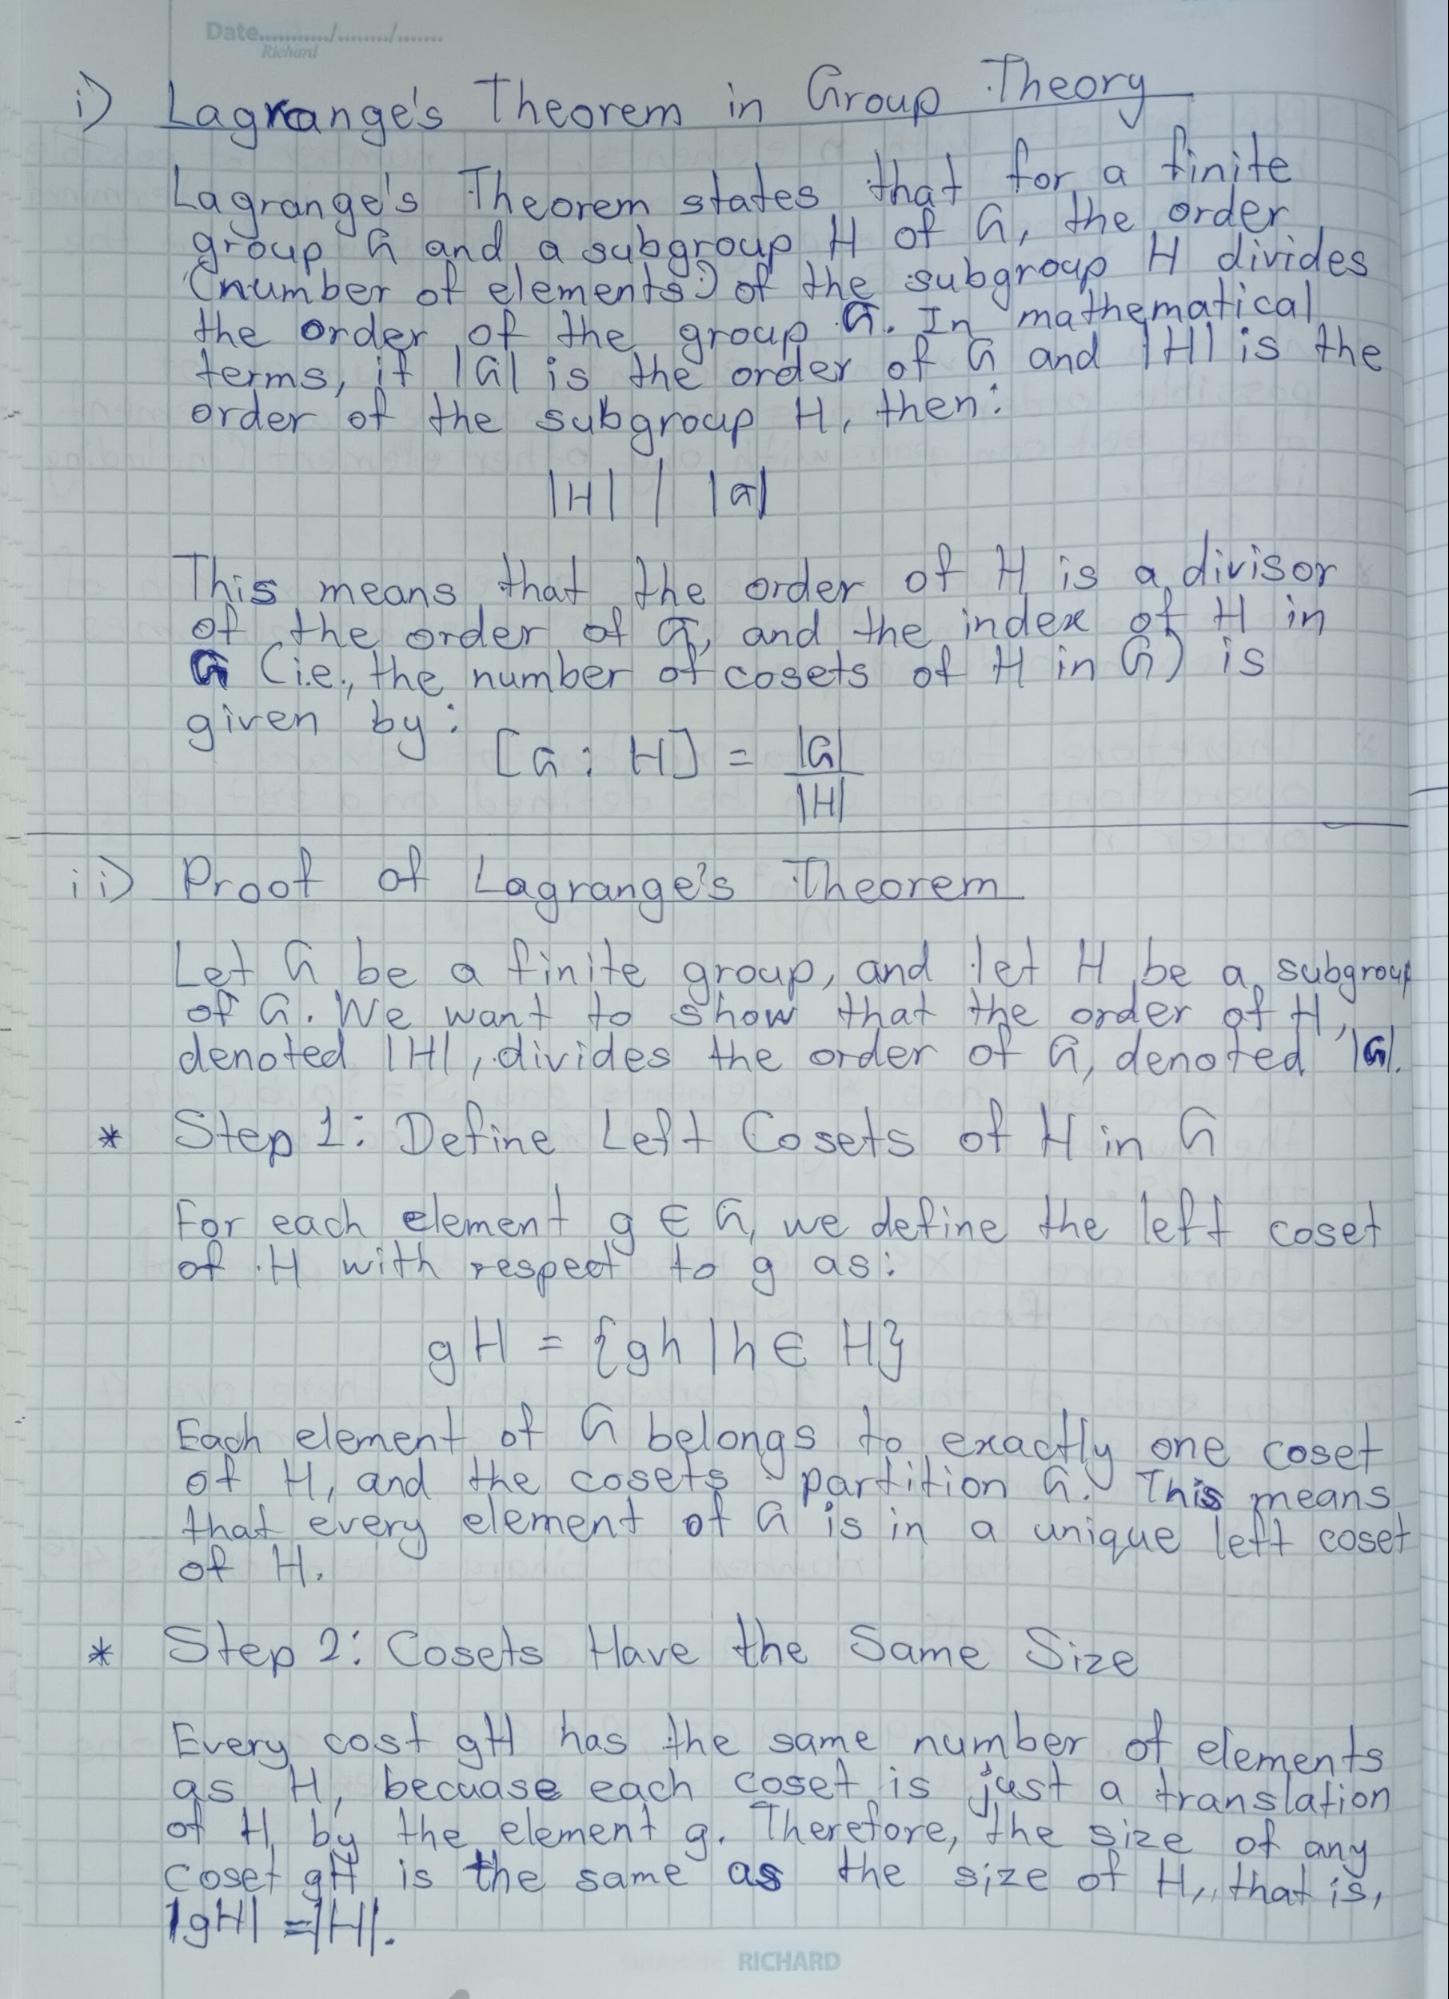 Date.........../......../.......
Richard
i) Lagrange's Theorem in Group Theory
Lagrange's Theorem states that for a finite
group G and a subgroup H of G, the order
(number of elements) of the subgroup H divides
the order of the group G. In mathematical
terms, if |G| is the order of G and |H| is the
order of the subgroup H, then:
|H| | |G|
This means that the order of H is a divisor
of the order of G, and the index of H in
G (i.e., the number of cosets of H in G) is
given by:
[G : H] = |G| / |H|
ii) Proof of Lagrange's Theorem
Let G be a finite group, and let H be a subgroup
of G. We want to show that the order of H,
denoted |H|, divides the order of G, denoted |G|.
* Step 1: Define Left Cosets of H in G
For each element g ∈ G, we define the left coset
of H with respect to g as:
gH = {gh | h ∈ H}
Each element of G belongs to exactly one coset
of H, and the cosets partition G. This means
that every element of G is in a unique left coset
of H.
* Step 2: Cosets Have the Same Size
Every cost gH has the same number of elements
as H, becuase each coset is just a translation
of H by the element g. Therefore, the size of any
coset gH is the same as the size of H, that is,
|gH| = |H|.
RICHARD